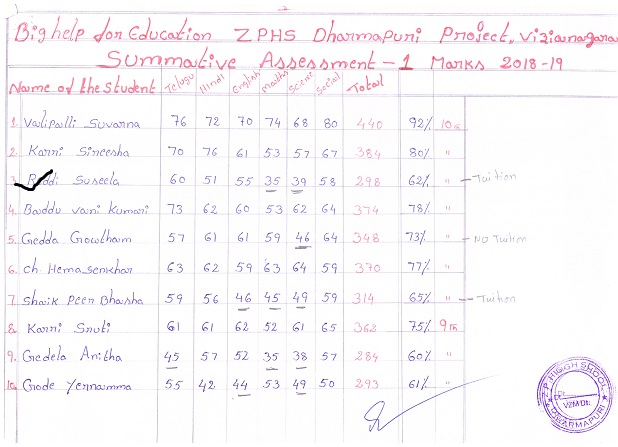 Bighelp for Education ZPHS Dharmapuri Project, Vizianagara
Summative Assessment - 1 Marks 2018-19
Name of the Student Telugu Hindi English Maths Sciene Social Total
1. Valipalli Suvarna 76 72 70 74 68 80 440 92% 10th
2. Karni Sireesha 70 76 61 53 57 67 384 80% "
3. Reddi Suseela 60 51 55 35 39 58 298 62% " - Tuition
4. Baddu vani Kumari 73 62 60 53 62 64 374 78% "
5. Gedda Gowtham 57 61 61 59 46 64 348 73% " - NO Tuition
6. Ch. Hemasenkhar 63 62 59 63 64 59 370 77% "
7. Shaik Peer Bhasha 59 56 46 45 49 59 314 65% " - Tuition
8. Karni Sruti 61 61 62 52 61 65 362 75% 9th
9. Gedela Anitha 45 57 52 35 38 57 284 60% "
10. Gode Yernamma 55 42 44 53 49 50 293 61% "
Z.P. HIGH SHOOL
VZM Dt.
DHARMAPURI